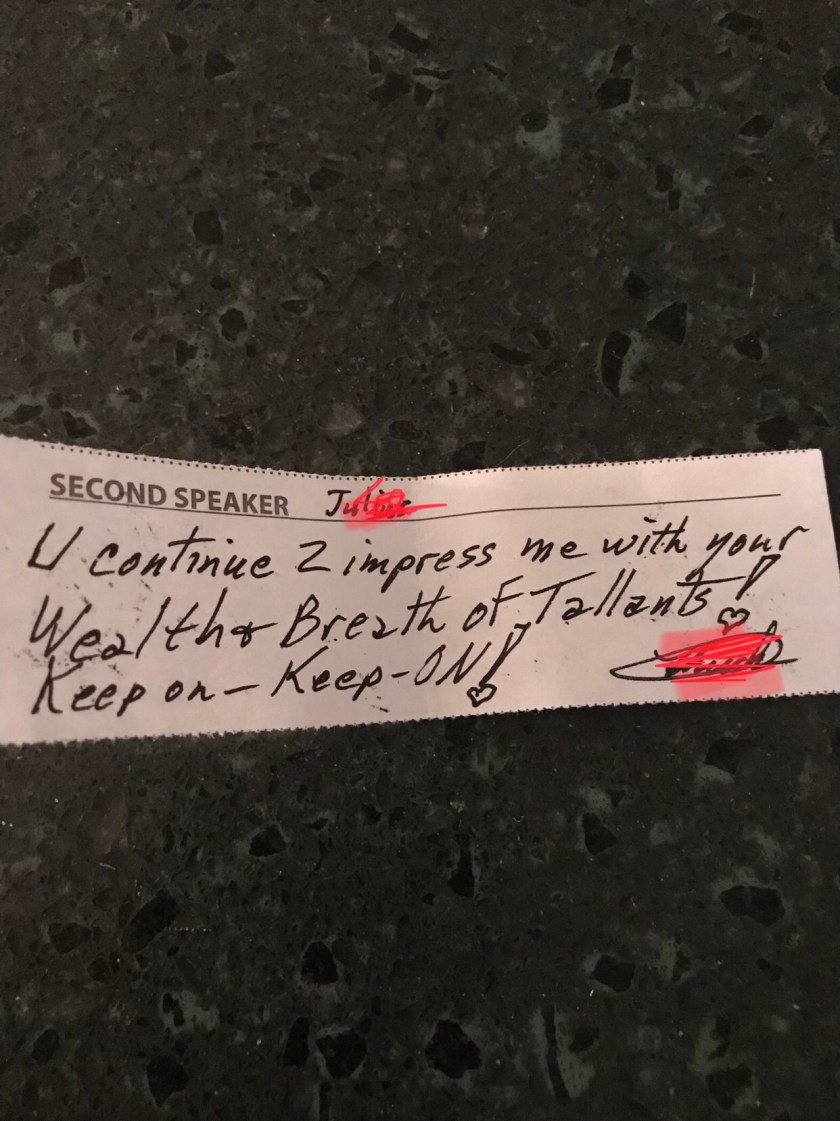 SECOND SPEAKER
U continue 2 impress me with your
Wealth & Breath of Tallants!
Keep on - Keep-ON!